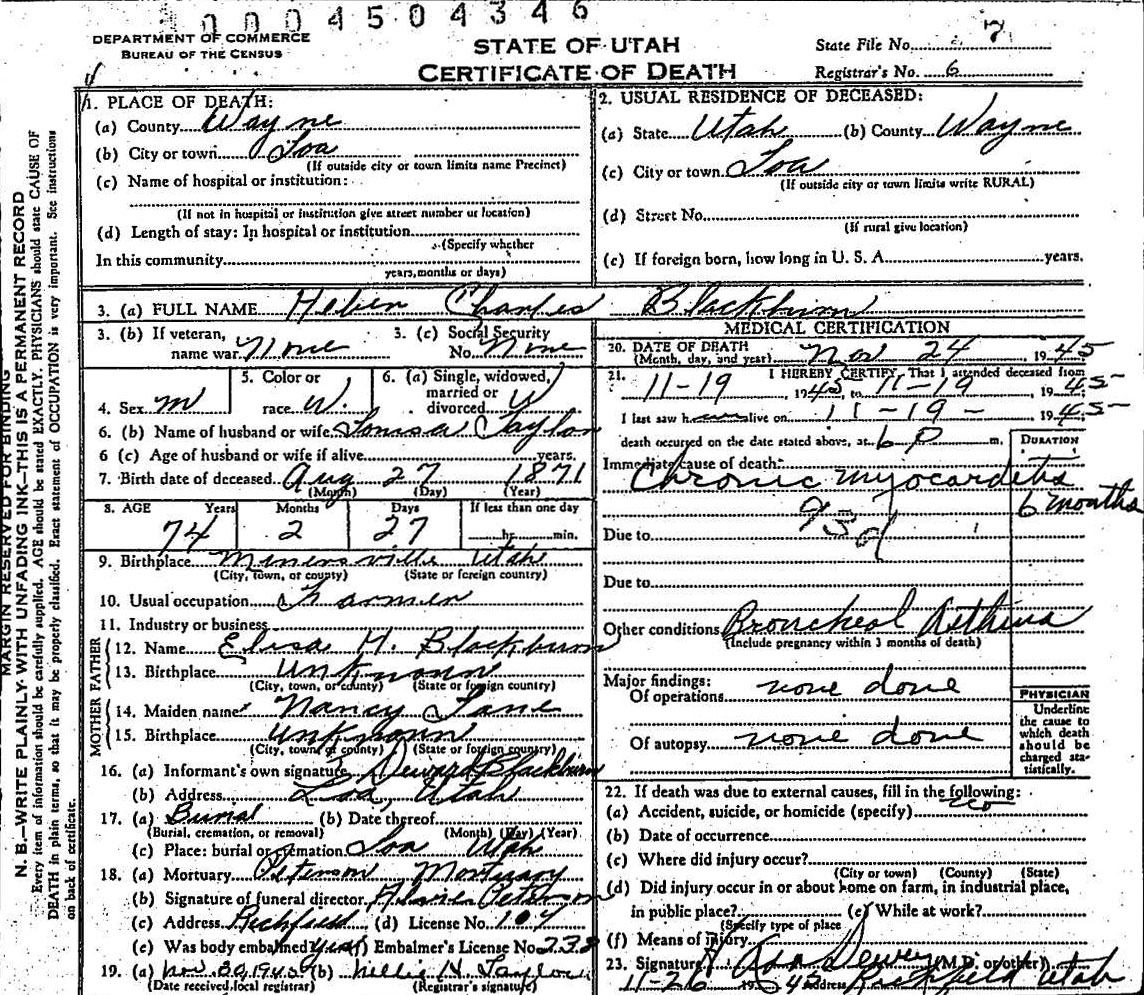 0004504346
DEPARTMENT OF COMMERCE
BUREAU OF THE CENSUS
STATE OF UTAH
CERTIFICATE OF DEATH
State File No. 7
Registrar's No. 6
MARGIN RESERVED FOR BINDING
N. B.—WRITE PLAINLY WITH UNFADING INK—THIS IS A PERMANENT RECORD
Every item of information should be carefully supplied. AGE should be stated EXACTLY. PHYSICIANS should state CAUSE OF
DEATH in plain terms, so that it may be properly classified. Exact statement of OCCUPATION is very important. See instructions
on back of certificate.
1. PLACE OF DEATH:
(a) County Wayne
(b) City or town Loa
(If outside city or town limits name Precinct)
(c) Name of hospital or institution:
(If not in hospital or institution give street number or location)
(d) Length of stay: In hospital or institution
(Specify whether
In this community
years, months or days)
2. USUAL RESIDENCE OF DECEASED:
(a) State Utah (b) County Wayne
(c) City or town Loa
(If outside city or town limits write RURAL)
(d) Street No.
(If rural give location)
(e) If foreign born, how long in U. S. A. years.
3. (a) FULL NAME Heber Charles Blackburn
3. (b) If veteran, 3. (c) Social Security
name war None No. None
4. Sex M 5. Color or race W. 6. (a) Single, widowed, married or divorced W
6. (b) Name of husband or wife Louisa Taylor
6 (c) Age of husband or wife if alive years.
7. Birth date of deceased Aug 27 1871
(Month) (Day) (Year)
8. AGE Years Months Days If less than one day
74 2 27 hr. min.
9. Birthplace Minersville Utah
(City, town, or county) (State or foreign country)
10. Usual occupation Farmer
11. Industry or business
FATHER
12. Name Elisa H. Blackburn
13. Birthplace Unknown
(City, town, or county) (State or foreign country)
MOTHER
14. Maiden name Nancy Lane
15. Birthplace Unknown
(City, town or county) (State or foreign country)
16. (a) Informant's own signature Deward Blackburn
(b) Address Loa, Utah
17. (a) Burial (b) Date thereof
(Burial, cremation, or removal) (Month) (Day) (Year)
(c) Place: burial or cremation Loa Utah
18. (a) Mortuary Peterson Mortuary
(b) Signature of funeral director Peterson
(c) Address Richfield (d) License No. 107
(e) Was body embalmed yes (f) Embalmer's License No. 238
19. (a) Nov. 30, 1945 (b) Nellie H Taylor
(Date received local registrar) (Registrar's signature)
MEDICAL CERTIFICATION
20. DATE OF DEATH
(Month, day, and year) Nov 24, 1945
21. I HEREBY CERTIFY, That I attended deceased from
11-19 1945, to 11-19 1945
I last saw h alive on 11-19- 1945
death occurred on the date stated above, at 6 P m.
DURATION
Immediate cause of death:
Chronic myocarditis
6 months
93d
Due to
Due to
Other conditions Broncheal Asthma
(Include pregnancy within 3 months of death)
Major findings:
Of operations none done
Of autopsy none done
PHYSICIAN
Underline
the cause to
which death
should be
charged sta-
tistically.
22. If death was due to external causes, fill in the following:
(a) Accident, suicide, or homicide (specify) no
(b) Date of occurrence
(c) Where did injury occur?
(City or town) (County) (State)
(d) Did injury occur in or about home on farm, in industrial place,
in public place? (e) While at work?
(Specify type of place
(f) Means of injury
23. Signature Asa Dewey (M.D. or other)
11-26 1945 Address Richfield Utah